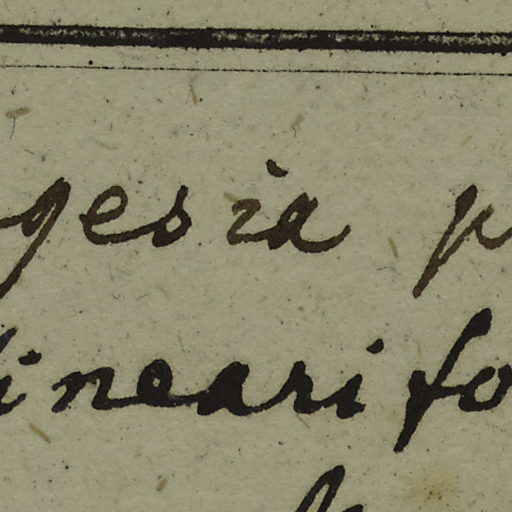 gesia p
linearifo